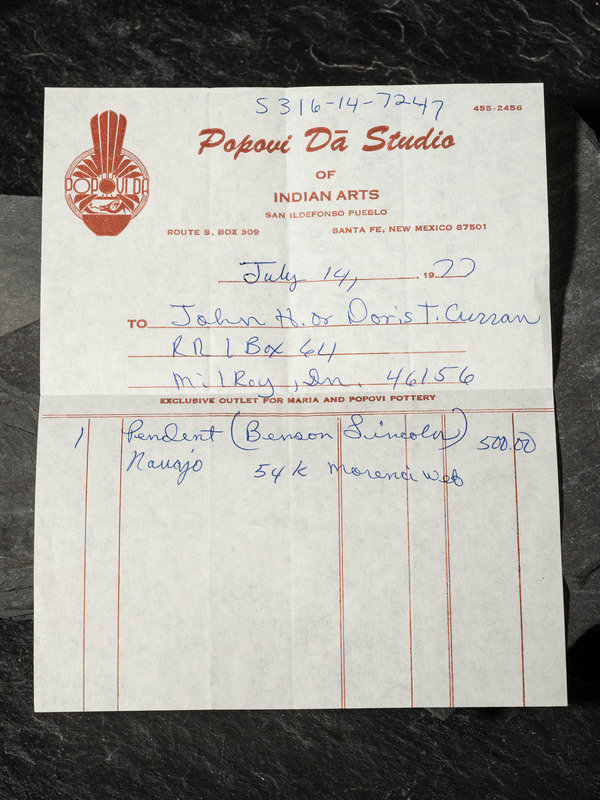 S316-14-7247
455-2456
POPOVI DA
Popovi Dā Studio
OF
INDIAN ARTS
SAN ILDEFONSO PUEBLO
ROUTE 5, BOX 309 SANTA FE, NEW MEXICO 87501
July 14, 1977
TO John H. or Doris T. Curran
RR 1 Box 64
MilRoy, In. 46156
EXCLUSIVE OUTLET FOR MARIA AND POPOVI POTTERY
1 Pendent (Benson Lincoln) 500.00
Navajo 54 K Morenci Web